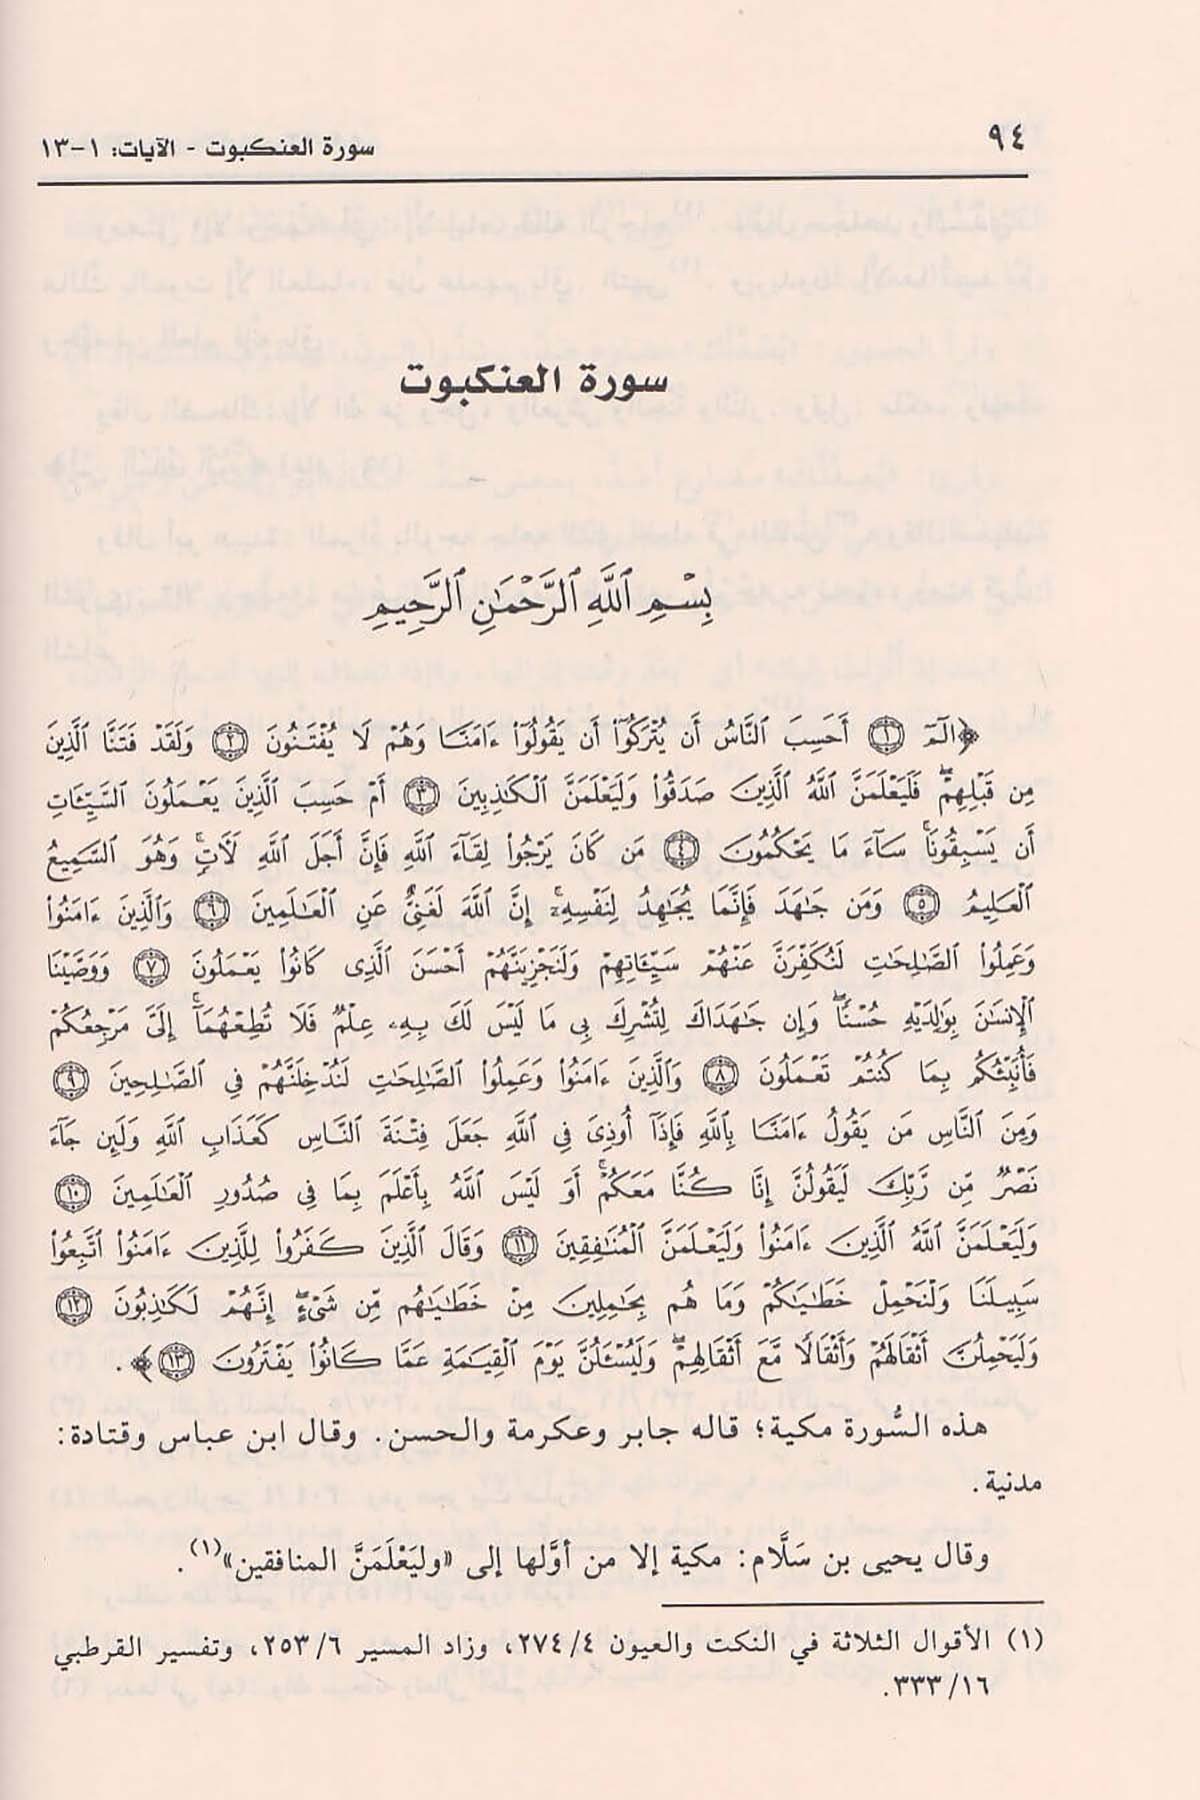 ٩٤
سورة العنكبوت - الآيات: ١-١٣
سورة العنكبوت
بِسْمِ ٱللَّهِ ٱلرَّحْمَٰنِ ٱلرَّحِيمِ
﴿الٓمٓ ۝١ أَحَسِبَ ٱلنَّاسُ أَن يُتْرَكُوٓا۟ أَن يَقُولُوٓا۟ ءَامَنَّا وَهُمْ لَا يُفْتَنُونَ ۝٢ وَلَقَدْ فَتَنَّا ٱلَّذِينَ
مِن قَبْلِهِمْ ۖ فَلَيَعْلَمَنَّ ٱللَّهُ ٱلَّذِينَ صَدَقُوا۟ وَلَيَعْلَمَنَّ ٱلْكَٰذِبِينَ ۝٣ أَمْ حَسِبَ ٱلَّذِينَ يَعْمَلُونَ ٱلسَّيِّـَٔاتِ
أَن يَسْبِقُونَا ۚ سَآءَ مَا يَحْكُمُونَ ۝٤ مَن كَانَ يَرْجُوا۟ لِقَآءَ ٱللَّهِ فَإِنَّ أَجَلَ ٱللَّهِ لَـَٔاتٍ ۚ وَهُوَ ٱلسَّمِيعُ
ٱلْعَلِيمُ ۝٥ وَمَن جَٰهَدَ فَإِنَّمَا يُجَٰهِدُ لِنَفْسِهِۦٓ ۚ إِنَّ ٱللَّهَ لَغَنِىٌّ عَنِ ٱلْعَٰلَمِينَ ۝٦ وَٱلَّذِينَ ءَامَنُوا۟
وَعَمِلُوا۟ ٱلصَّٰلِحَٰتِ لَنُكَفِّرَنَّ عَنْهُمْ سَيِّـَٔاتِهِمْ وَلَنَجْزِيَنَّهُمْ أَحْسَنَ ٱلَّذِى كَانُوا۟ يَعْمَلُونَ ۝٧ وَوَصَّيْنَا
ٱلْإِنسَٰنَ بِوَٰلِدَيْهِ حُسْنًا ۖ وَإِن جَٰهَدَاكَ لِتُشْرِكَ بِى مَا لَيْسَ لَكَ بِهِۦ عِلْمٌ فَلَا تُطِعْهُمَآ ۚ إِلَىَّ مَرْجِعُكُمْ
فَأُنَبِّئُكُم بِمَا كُنتُمْ تَعْمَلُونَ ۝٨ وَٱلَّذِينَ ءَامَنُوا۟ وَعَمِلُوا۟ ٱلصَّٰلِحَٰتِ لَنُدْخِلَنَّهُمْ فِى ٱلصَّٰلِحِينَ ۝٩
وَمِنَ ٱلنَّاسِ مَن يَقُولُ ءَامَنَّا بِٱللَّهِ فَإِذَآ أُوذِىَ فِى ٱللَّهِ جَعَلَ فِتْنَةَ ٱلنَّاسِ كَعَذَابِ ٱللَّهِ وَلَئِن جَآءَ
نَصْرٌ مِّن رَّبِّكَ لَيَقُولُنَّ إِنَّا كُنَّا مَعَكُمْ ۚ أَوَ لَيْسَ ٱللَّهُ بِأَعْلَمَ بِمَا فِى صُدُورِ ٱلْعَٰلَمِينَ ۝١٠
وَلَيَعْلَمَنَّ ٱللَّهُ ٱلَّذِينَ ءَامَنُوا۟ وَلَيَعْلَمَنَّ ٱلْمُنَٰفِقِينَ ۝١١ وَقَالَ ٱلَّذِينَ كَفَرُوا۟ لِلَّذِينَ ءَامَنُوا۟ ٱتَّبِعُوا۟
سَبِيلَنَا وَلْنَحْمِلْ خَطَٰيَٰكُمْ وَمَا هُم بِحَٰمِلِينَ مِنْ خَطَٰيَٰهُم مِّن شَىْءٍ ۖ إِنَّهُمْ لَكَٰذِبُونَ ۝١٢
وَلَيَحْمِلُنَّ أَثْقَالَهُمْ وَأَثْقَالًا مَّعَ أَثْقَالِهِمْ ۖ وَلَيُسْـَٔلُنَّ يَوْمَ ٱلْقِيَٰمَةِ عَمَّا كَانُوا۟ يَفْتَرُونَ ۝١٣﴾.
هذه السُّورة مكية؛ قاله جابر وعكرمة والحسن. وقال ابن عباس وقتادة:
مدنية.
وقال يحيى بن سَلَّام: مكية إلا من أوَّلها إلى «وليَعْلَمَنَّ المنافقين»(١).
(١) الأقوال الثلاثة في النكت والعيون ٤/ ٢٧٤، وزاد المسير ٦/ ٢٥٣، وتفسير القرطبي
١٦/ ٣٣٣.